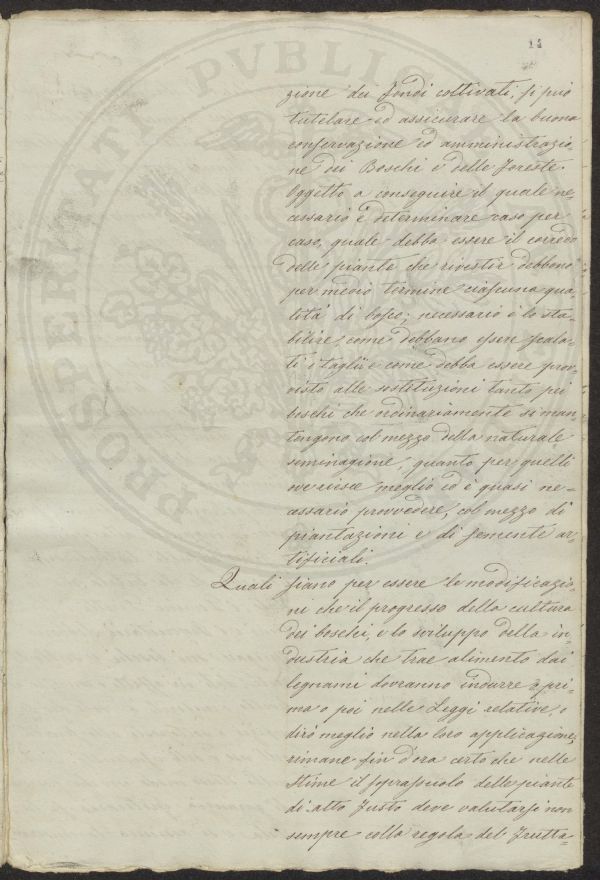 14
PROSPERITATI PVBLICAE
zione dei fondi coltivati, si può
tutelare ed assicurare la buona
conservazione ed amministrazio
ne dei Boschi e delle foreste.
Oggetto a conseguire il quale ne=
cessario è determinare caso per
caso, quale debba essere il corredo
delle piante che rivestir debbono
per medio termine ciascuna qua=
lità di bosco; necessario è lo sta=
bilire, come debbano essere scala=
ti i tagli e come debba essere prov=
visto alle sostituzioni tanto pei
boschi che ordinariamente si man
tengono col mezzo della naturale
seminagione, quanto per quelli
ove riesce meglio ed è quasi ne=
cessario provvedere, col mezzo di
piantazioni e di semente ar=
tificiali.
Quali siano per essere le modificazio=
ni che il progresso della cultura
dei boschi, e lo sviluppo della in=
dustria che trae alimento dai
legnami dovranno indurre o pri=
ma o poi nelle Leggi relative, o
dirò meglio nella loro applicazione,
rimane fin d'ora certo che nelle
stime il soprasuolo delle piante
di alto fusto deve valutarsi non
sempre colla regola del frutta=